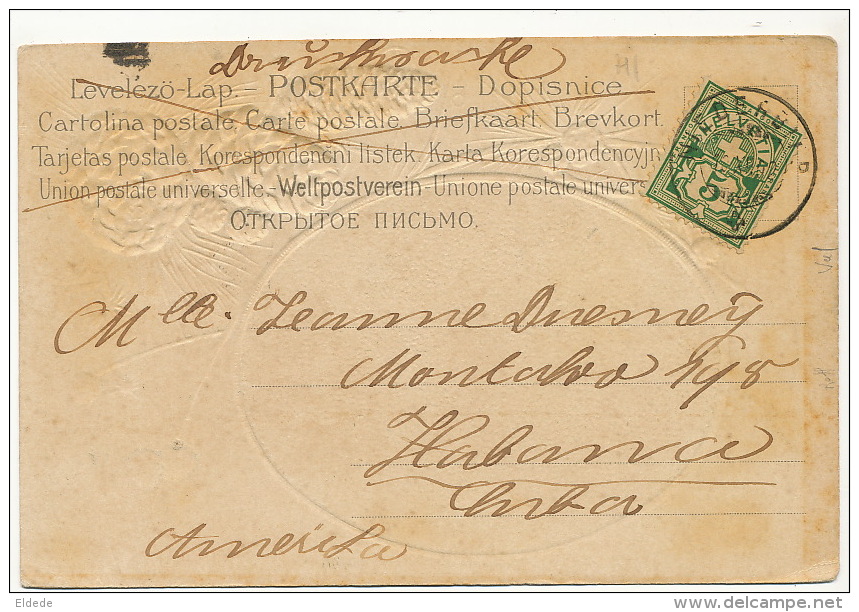 Drucksache
Levelező-Lap. – POSTKARTE – Dopisnice
Cartolina postale. Carte postale. Briefkaart. Brevkort.
Tarjetas postale. Korespondencni listek. Karta Korespondencyjn
Union postale universelle.-Weltpostverein-Unione postale univers
ОТКРЫТОЕ ПИСЬМО.
HELVETIA
5
Mlle. Jeanne Duesney
Montalvo 198
Habana
Cuba
Amerika
Eldede
www.delcampe.net